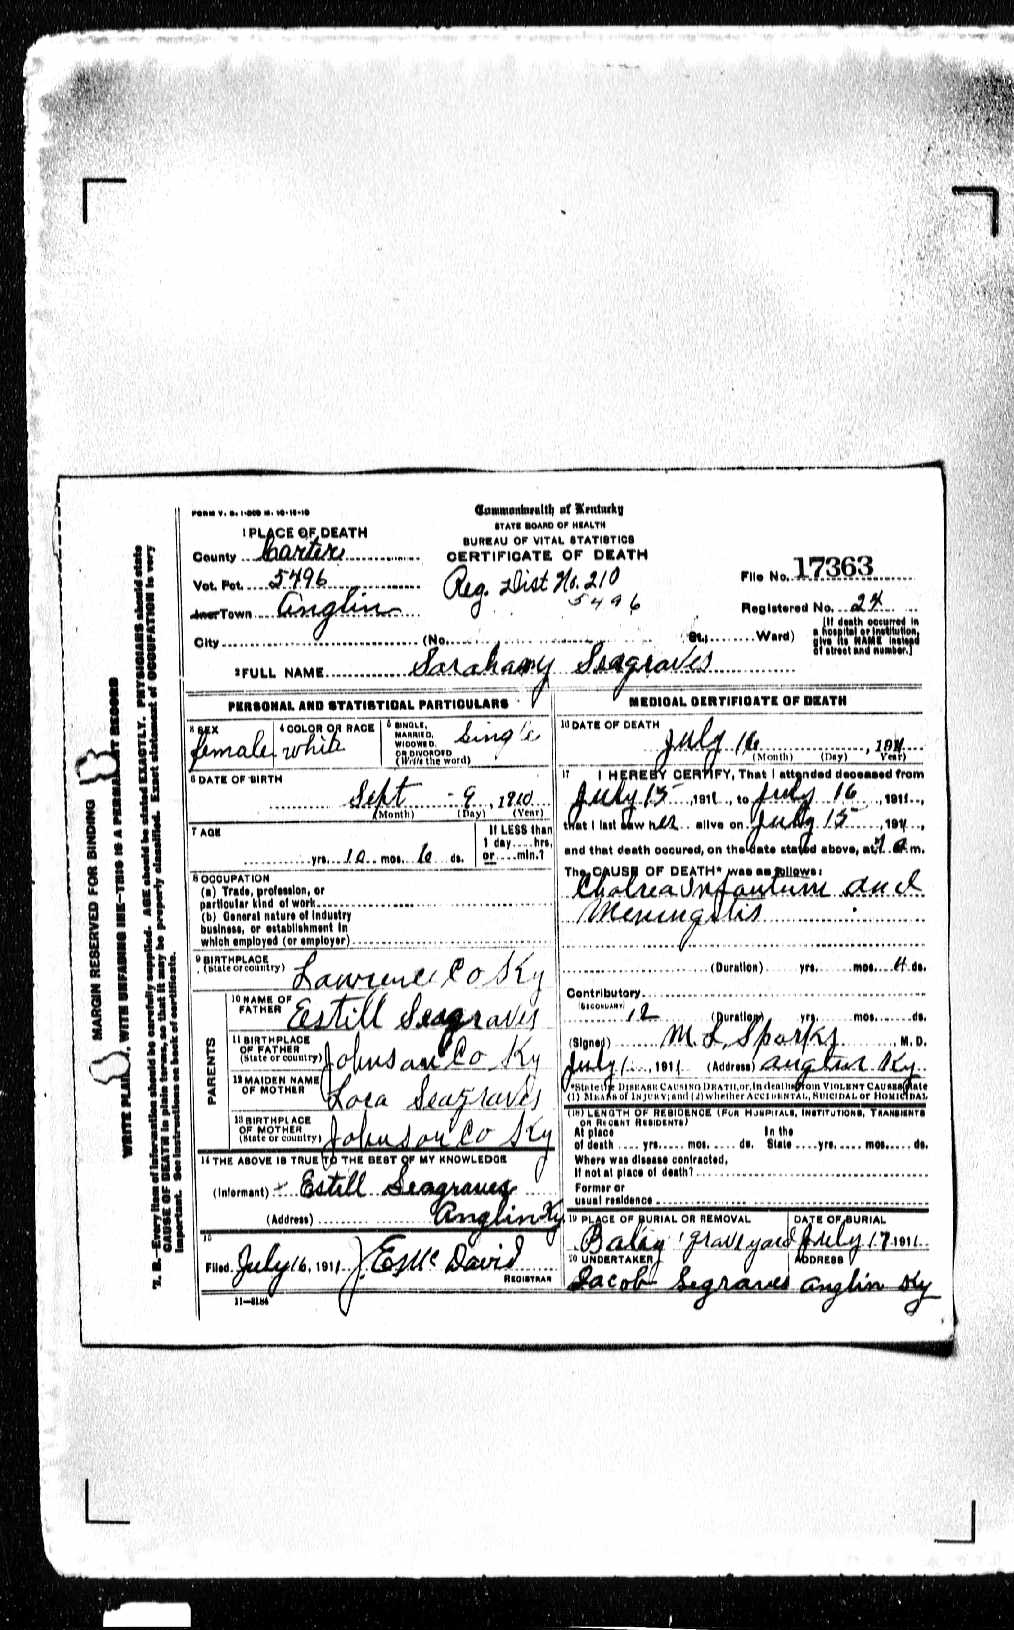 FORM V. S. 1-200 M. 10-15-10
Commonwealth of Kentucky
STATE BOARD OF HEALTH
BUREAU OF VITAL STATISTICS
CERTIFICATE OF DEATH
1 PLACE OF DEATH
County Carter
Vot. Pct. 5496
Inc. Town Anglin
City (No. St., Ward)
Reg. Dist No. 210
5496
File No. 17363
Registered No. 24
[If death occurred in
a hospital or institution,
give its NAME instead
of street and number.]
2 FULL NAME Sarahany Seagraves
PERSONAL AND STATISTICAL PARTICULARS
3 SEX
female
4 COLOR OR RACE
white
5 SINGLE,
MARRIED,
WIDOWED,
OR DIVORCED
(Write the word)
Single
6 DATE OF BIRTH
Sept 9, 1910
(Month) (Day) (Year)
7 AGE
yrs. 10 mos. 6 ds.
If LESS than
1 day hrs.
or min.?
8 OCCUPATION
(a) Trade, profession, or
particular kind of work
(b) General nature of Industry
business, or establishment in
which employed (or employer)
9 BIRTHPLACE
(State or country) Lawrence Co Ky
PARENTS
10 NAME OF
FATHER Estill Seagraves
11 BIRTHPLACE
OF FATHER
(State or country) Johnson Co Ky
12 MAIDEN NAME
OF MOTHER Lora Seagraves
13 BIRTHPLACE
OF MOTHER
(State or country) Johnson Co Ky
14 THE ABOVE IS TRUE TO THE BEST OF MY KNOWLEDGE
(Informant) Estill Seagraves
(Address) Anglin Ky
15
Filed July 16, 1911 McDavid
REGISTRAR
11-8184
MEDICAL CERTIFICATE OF DEATH
16 DATE OF DEATH
July 16, 1911
(Month) (Day) Year)
17 I HEREBY CERTIFY, That I attended deceased from
July 15, 1911, to July 16, 1911,
that I last saw her alive on July 15, 1911,
and that death occured, on the date stated above, at 7 a m.
The CAUSE OF DEATH* was as follows:
Cholrea Infantum and
Meningetis
(Duration) yrs. mos. 4 ds.
Contributory
(SECONDARY)
12 (Duration) yrs. mos. ds.
(Signed) M. L. Sparks, M. D.
July 1, 1911 (Address) Anglin Ky
*State the DISEASE CAUSING DEATH, or, in deaths from VIOLENT CAUSES, state
(1) MEANS OF INJURY; and (2) whether ACCIDENTAL, SUICIDAL or HOMICIDAL
(18) LENGTH OF RESIDENCE (FOR HOSPITALS, INSTITUTIONS, TRANSIENTS
OR RECENT RESIDENTS)
At place In the
of death yrs. mos. ds. State yrs. mos. ds.
Where was disease contracted,
If not at place of death?
Former or
usual residence
19 PLACE OF BURIAL OR REMOVAL
graveyard
DATE OF BURIAL
July 17 1911
20 UNDERTAKER
Jacob Segraves
ADDRESS
Anglin Ky
MARGIN RESERVED FOR BINDING
WRITE PLAINLY, WITH UNFADING INK—THIS IS A PERMANENT RECORD
N. B.—Every item of information should be carefully supplied. AGE should be stated EXACTLY. PHYSICIANS should state
CAUSE OF DEATH in plain terms, so that it may be properly classified. Exact statement of OCCUPATION is very
important. See instructions on back of certificate.